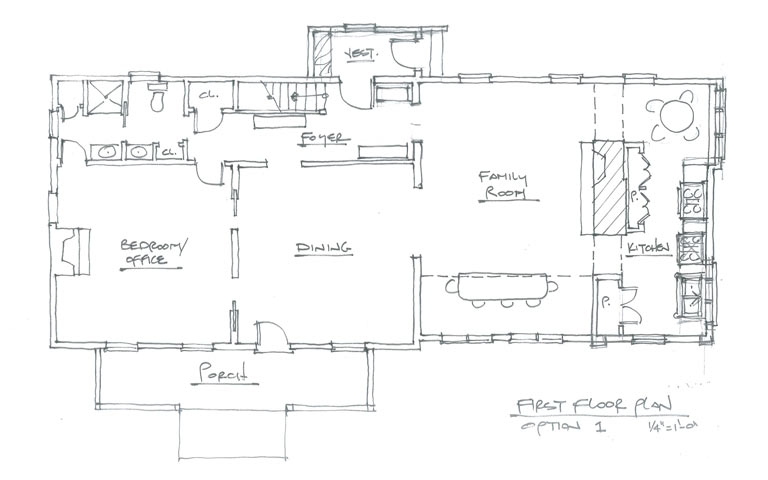 VEST.
CL.
FOYER
CL.
FAMILY
ROOM
P.
BEDROOM/
OFFICE
DINING
KITCHEN
P.
PORCH
FIRST FLOOR PLAN
OPTION 1 1/4"=1'-0"